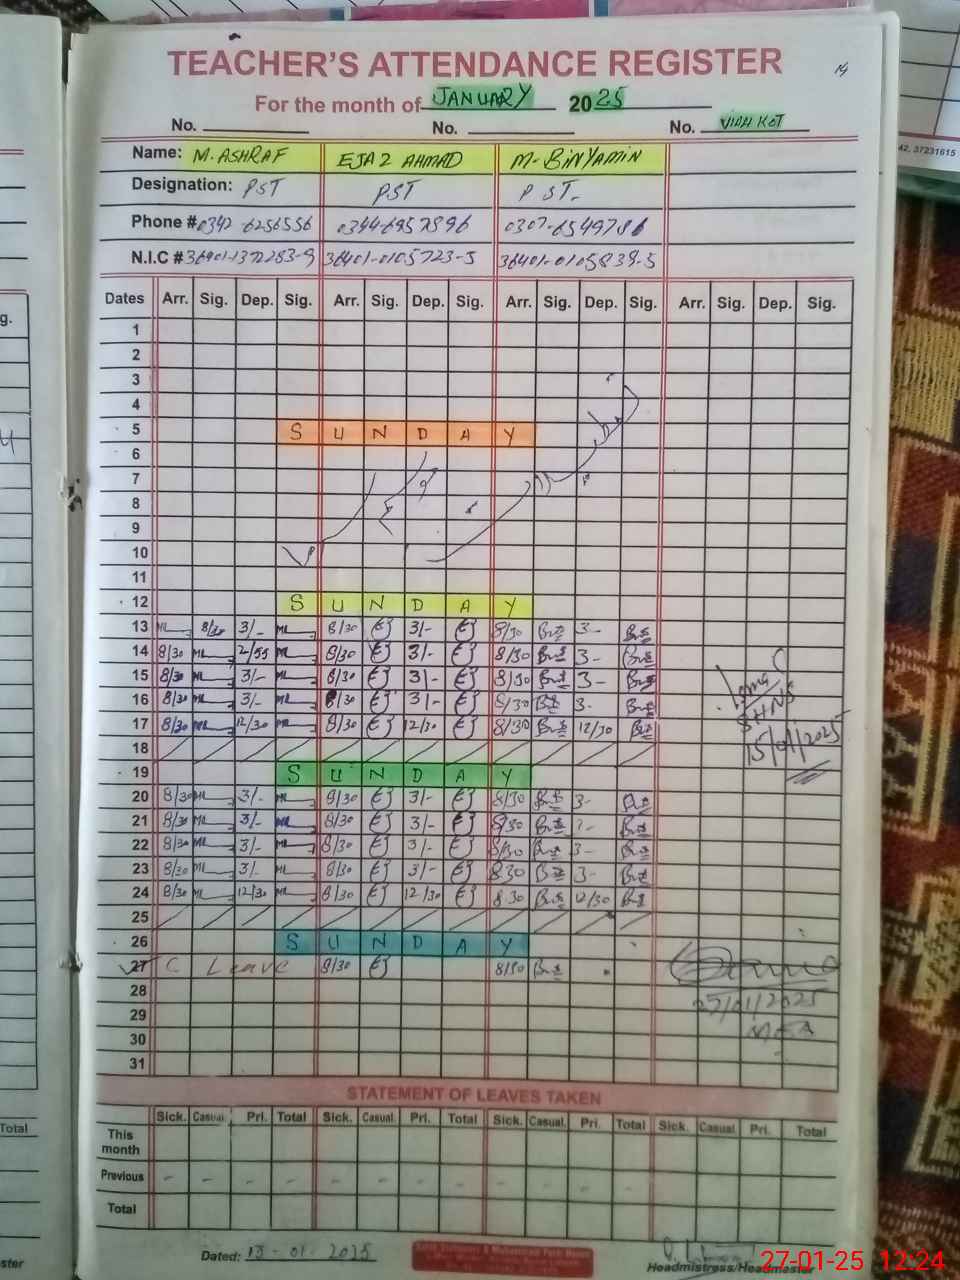 TEACHER'S ATTENDANCE REGISTER
14
For the month of JANUARY 2025
No. No. No. VIAH KOT
42, 37231615
Name: M. ASHRAF EJAZ AHMAD M. BINYAMIN
Designation: PST PST PST.
Phone # 0342-6256556 0344-6957896 0307-6549786
N.I.C # 36401-0105723-5 36401-0105839-5
Dates Arr. Sig. Dep. Sig. Arr. Sig. Dep. Sig. Arr. Sig. Dep. Sig. Arr. Sig. Dep. Sig.
1
2
3
4
5 S U N D A Y
6
7
8
9
10
11
12 S U N D A Y
13 8/30 3/- 8/30 EJ 3/- EJ 8/30 3-
14 8/30 2/55 8/30 EJ 3/- EJ 8/30 3-
15 8/30 3/- 8/30 EJ 3/- EJ 8/30 3-
16 8/30 3/- 8/30 EJ 3/- EJ 8/30 3-
17 8/30 12/30 8/30 EJ 12/30 EJ 8/30 12/30
15/01/2025
18
19 S U N D A Y
20 8/30 3/- 8/30 EJ 3/- EJ 8/30 3-
21 8/30 3/- 8/30 EJ 3/- EJ 8/30
22 8/30 3/- 8/30 EJ 3/- EJ 8/30 3-
23 8/30 3/- 8/30 EJ 3/- EJ 830 3-
24 8/30 12/30 8/30 EJ 12/30 EJ 8 30 12/30
25
26 S U N D A Y
27 C Leave 8/30 EJ 8/30
28 27/01/2025
29 MEA
30
31
STATEMENT OF LEAVES TAKEN
Sick. Casual. Pri. Total Sick. Casual. Pri. Total Sick. Casual. Pri. Total Sick. Casual. Pri. Total
This month
Previous - - - - - - - - - - - -
Total
Dated: 13-01-2025
Headmistress/Headmaster
27-01-25 12:24